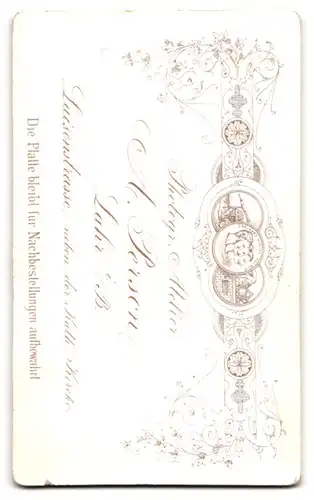 Photogr. Atelier
A. Person,
Lahr i/B.
Luisenstrasse, neben der Kath. Kirche.
Die Platte bleibt für Nachbestellungen aufbewahrt